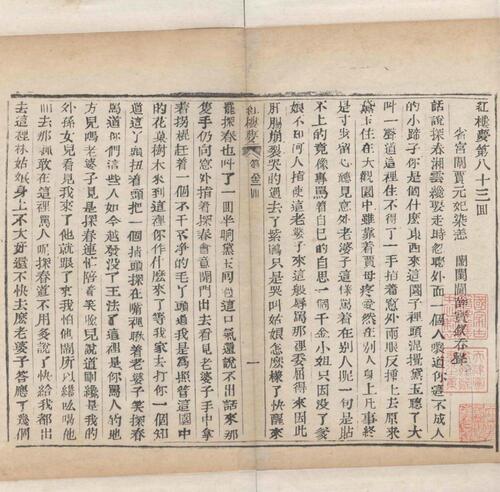 紅樓夢第八十三回
省宮闈賈元妃染恙 鬧閨閫薛寶釵吞聲
話說探春湘雲纔要走時忽聽外面一個人嚷道你這不成人
的小蹄子你是個什麼東西來這園子裡頭混攪黛玉聽了大
叫一聲道這裡住不得了一手指着窗外兩眼反揷上去原來
黛玉住在大觀園中雖靠着賈母疼愛然在別人身上凡事終
是寸步留心聽見窗外老婆子這樣罵着在別人呢一句是貼
不上的竟像專罵着自己的自思一個千金小姐只因没了爹
娘不知何人指使這老婆子來這般辱罵那裡委屈得來因此
肝腸崩裂哭的過去了紫鵑只是哭叫姑娘怎麼樣了快醒來
紅樓夢 第八十三回 一
罷探春也叫了一回半晌黛玉囘過這口氣還說不出話來那
隻手仍向窗外指着探春會意開門出去看見老婆子手中拿
着拐棍赶着一個不干不净的毛丫頭道我是爲照管這園中
的花菓樹木來到這裡你作什麼來了等我家去打你一個知
道這丫頭扭着頭把一個指頭探在嘴裡瞅着老婆子笑探春
罵道你們這些人如今越發没了王法了這裡是你罵人的地
方兒嗎老婆子見是探春連忙陪着笑臉兒說道剛纔是我的
外孫女兒看見我來了他就跟了來我怕他鬧所以纔吆喝他
囘去那裡敢在這裡罵人呢探春道不用多說了快給我都出
去這裡林姑娘身上不大好還不快去麼老婆子答應了幾個